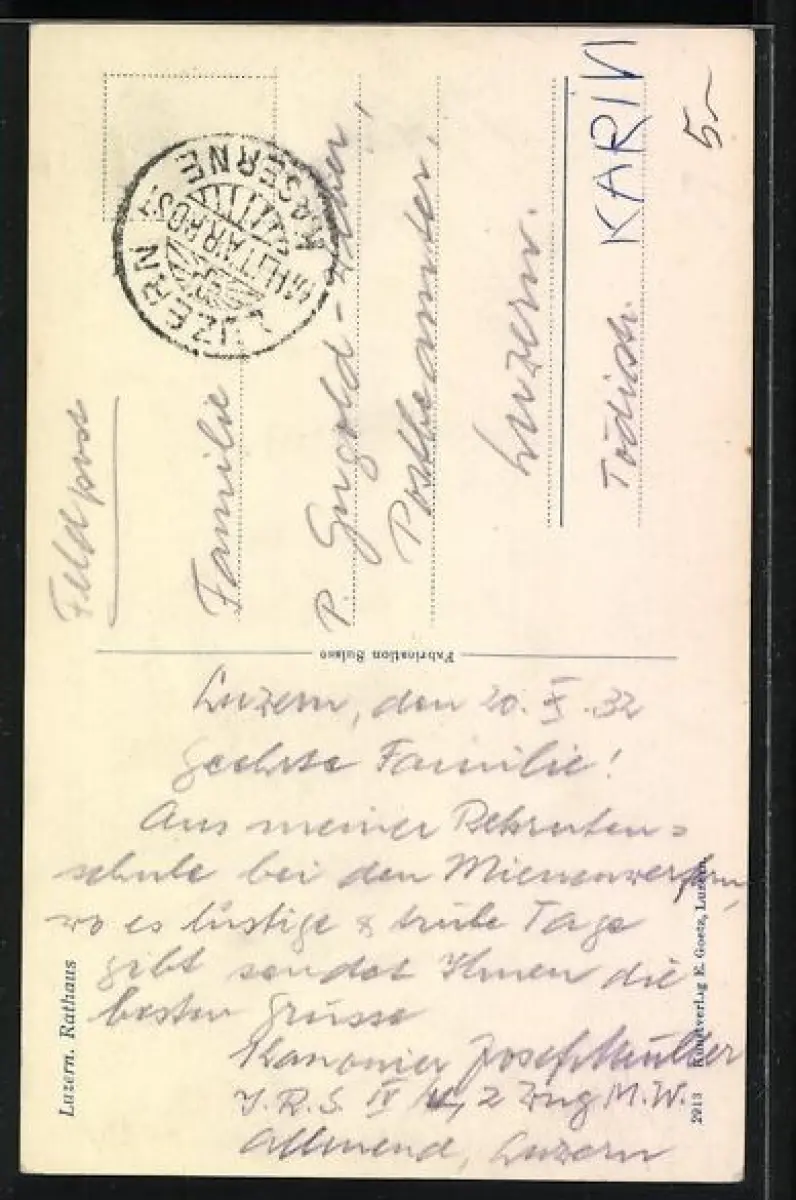 Feldpost
LUZERN 1
MILITAIRPOST
KASERNE
Familie
P. Gugold -
Postbeamter,
Luzern.
Tödistr.
KARIN
5.-
Fabrication Suisse
Luzern, den 20. X. 32
Geehrte Familie!
Aus meiner Rekruten=
schule bei den Mienenwerfern,
wo es lustige & trübe Tage
gibt sendet Ihnen die
besten Grüsse
Kanonier Josef Müller
I.R.S. IV 2 Zug M.W.
Allmend, Luzern
Luzern. Rathaus
2913 Kunstverlag E. Goetz, Luzern